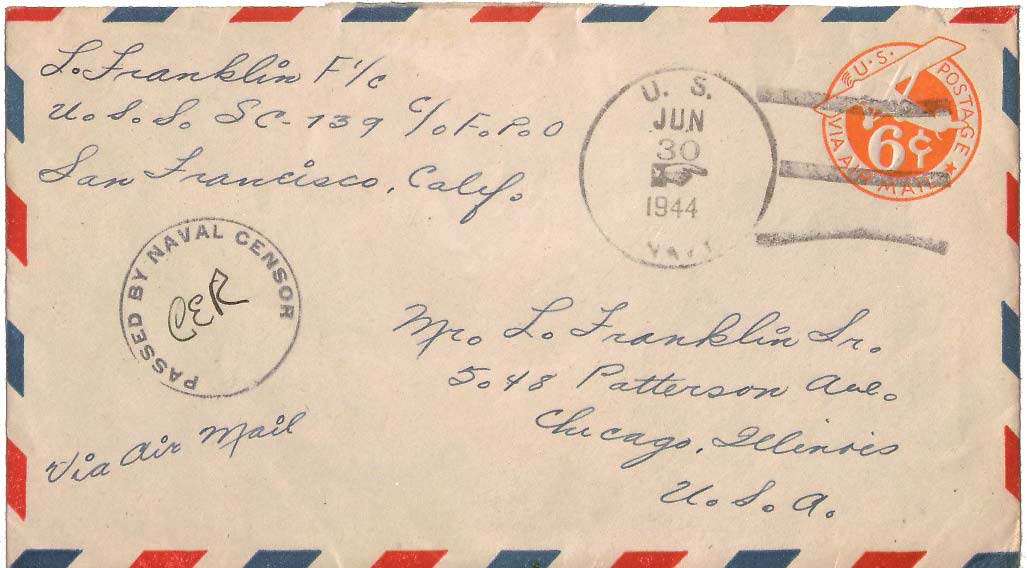 L. Franklin F 1/c
U.S.S. SC-739 c/o F.P.O
San Francisco, Calif.
U. S.
JUN
30
1944
NAVY
U.S. POSTAGE
6¢
VIA AIR MAIL
PASSED BY NAVAL CENSOR
CER
Mr. L. Franklin Sr.
5048 Patterson Ave.
Chicago, Illinois
U.S.A.
Via Air Mail